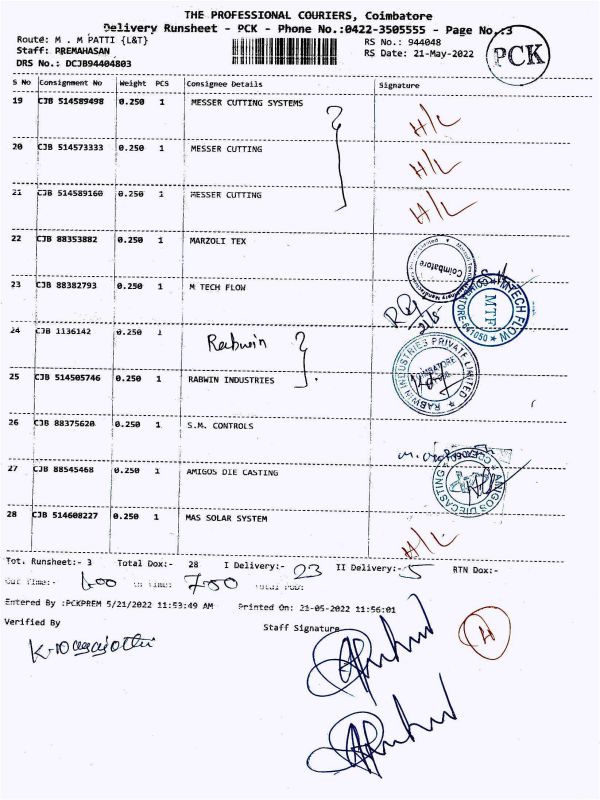 THE PROFESSIONAL COURIERS, Coimbatore
Delivery Runsheet - PCK - Phone No.:0422-3505555 - Page No.:3
Route: M . M PATTI {L&T}
RS No.: 944048
Staff: PREMAHASAN
RS Date: 21-May-2022
DRS No.: DCJB94404803
PCK
S No Consignment No Weight PCS Consignee Details Signature
19 CJB 514589498 0.250 1 MESSER CUTTING SYSTEMS H/L
20 CJB 514573333 0.250 1 MESSER CUTTING H/L
21 CJB 514589160 0.250 1 MESSER CUTTING H/L
22 CJB 88353882 0.250 1 MARZOLI TEX
Coimbatore
23 CJB 88382793 0.250 1 M TECH FLOW
M TECH FLOW COIMBATORE-641050 MTF
24 CJB 1136142 0.250 1 Rabwin
RABWIN INDUSTRIES PRIVATE LIMITED COIMBATORE
25 CJB 514505746 0.250 1 RABWIN INDUSTRIES
26 CJB 88375620 0.250 1 S.M. CONTROLS
27 CJB 88545468 0.250 1 AMIGOS DIE CASTING
28 CJB 514608227 0.250 1 MAS SOLAR SYSTEM H/L
Tot. Runsheet:- 3 Total Dox:- 28 I Delivery:- 23 II Delivery:- 5 RTN Dox:-
Out Time:- 600 In Time:- 700 Total POD:-
Entered By :PCKPREM 5/21/2022 11:53:49 AM Printed On: 21-05-2022 11:56:01
Verified By
Staff Signature
H